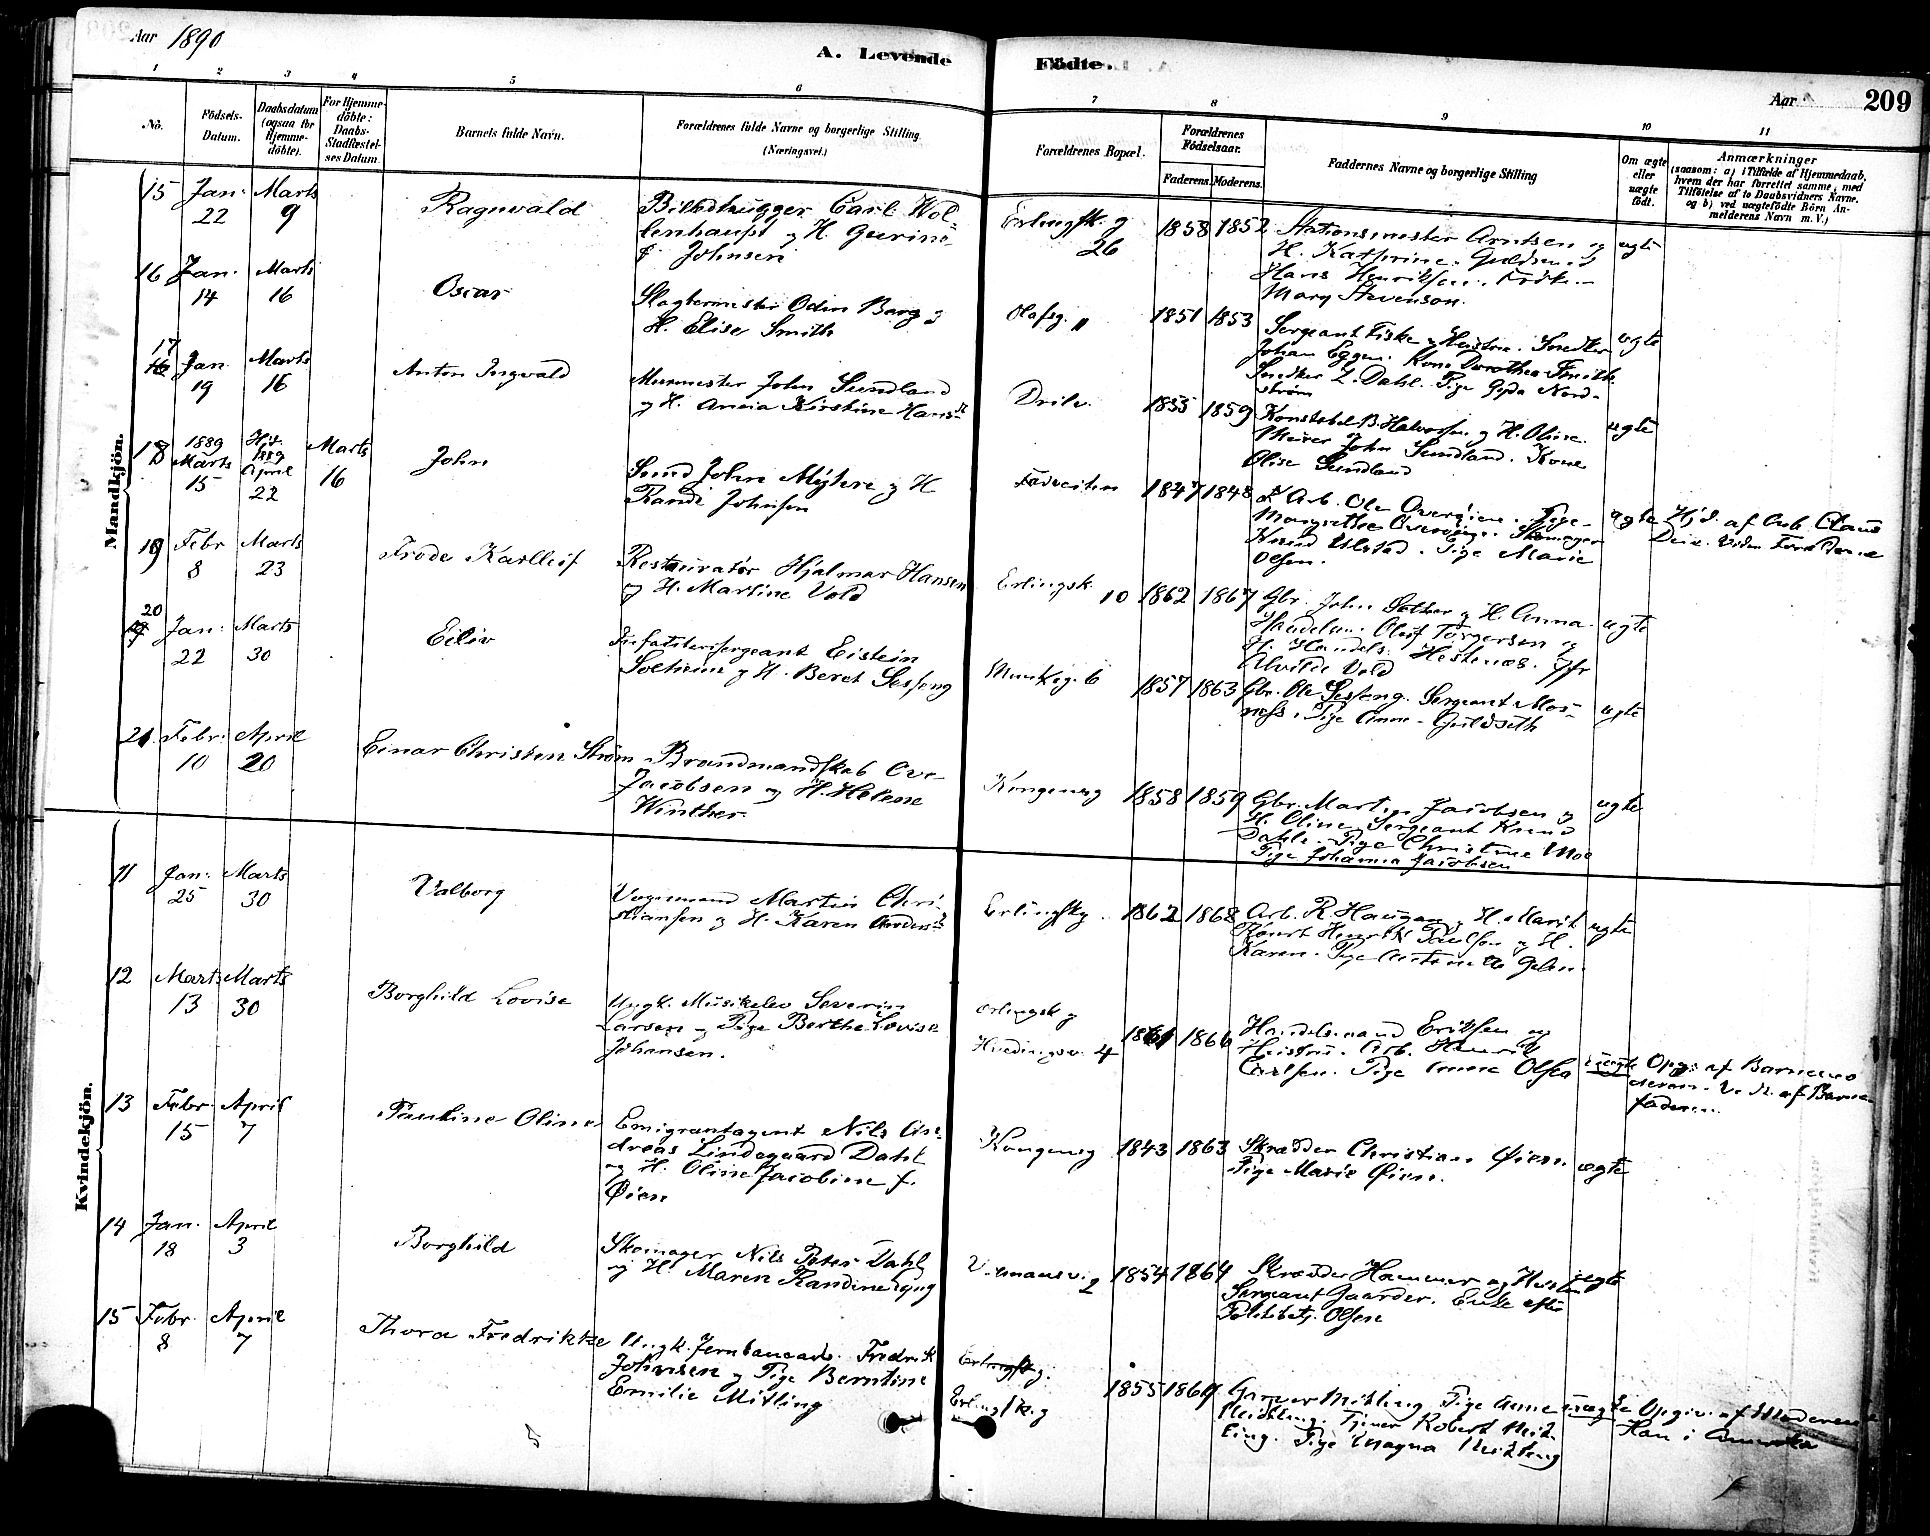 Aar 1890
A. Levende Födte.
Aar
209
1 2 3 4 5 6 7 8 9 10 11
No.
Födsels-Datum.
Daabsdatum (ogsaa for Hjemme-döbte).
For Hjemme-döbte: Daabs-Stadfæstel-ses Datum.
Barnets fulde Navn.
Forældrenes fulde Navne og borgerlige Stilling (Næringsvei.)
Forældrenes Bopæl.
Forældrenes Födselsaar.
Faderens. Moderens.
Faddernes Navne og borgerlige Stilling
Om ægte eller uægte födt.
Anmærkninger
(saasom: a) i Tilfælde af Hjemmedaab, hvem der har forrettet samme, med Tilföielse af to Daabsvidners Navne, og b) ved uægtefödte Börn An-melderens Navn m. V.)
Mandkjön.
15 Jan. 22 Marts 9 Ragnvald
Billedhugger Carl Wol-
lenhaupt og H. Gurine
f. Johnsen
Erlingsk. g 26
1858 1852
Stationsmester Arntsen og
H. Kathrine.
Hans Henriksen. Frök.
Mary Stevenson.
ægte
16 Jan. 14 Marts 16 Oscar
Slagtermester Odin Barg og
H. Elise Smith
Olafsg. 11
1851 1853
Sergeant Fiske og Hustru. Snedker
Johan Eggen. Kone Dorothea Smith
Snedker L. Dahl. Pige Gyda Nord-
ström
ægte
17 Jan. 19 Marts 16 Anton Ingvald
Murmester John Sundland
og H. Kirstine Hansdt
1855 1859
Konstabel B. Halvorsen og H. Oline.
Murer John Sundland. Kone
Olise Sundland
ægte
18 1889 Marts 15 Hjd. 1889 April 22 Marts 16 John
John og H
Randi Johnsen
1847 1848
Arb. Ole Overöien. Pige
Margrethe Overöien. Skomager
Ulstad. Pige Marie
Olsen.
ægte
Hjd. af Arb. Claus
Forældrene
19 Febr 8 Marts 23 Frode Karlleif
Restauratör Hjalmar Hansen
og H. Martine Vold
Erlingsk. 10
1862 1867
Gbr. John Sæther og H. Anna.
Oluf Torgersen og
H. Handels. Hestenæs. Jfr
Alvilde Vold
ægte
20 Jan. 22 Marts 30 Eiliv
Infanterisergeant Eistein
Solheim og H. Beret Sesseng
Munkeg. 6
1857 1863
Gbr. Ole Sesseng. Sergeant Mos-
næss. Pige Anne Guldseth
ægte
21 Febr. 10 April 20 Einar Christen Ström
Brandmandskab Ove
Jacobsen og H. Helene
Winther
Kongensg
1858 1859
Gbr. Martin Jacobsen og
H. Oline. Sergeant Knud
Dahle. Pige Christine Moe
Pige Johanna Jacobsen
ægte
Kvindekjön.
11 Jan. 25 Marts 30 Valborg
Vognmand Martin Chri-
stiansen og H. Karen Andersdt
Erlingskg.
1862 1868
Arb. R. Haugan og H. Marit
Henrik Paulsen og H.
Karen. Pige
ægte
12 Marts 13 Marts 30 Borghild Lovise
Ungk. Musikelev Severin
Larsen og Pige Berthe Lovise
Johansen.
Erlingsk g
4
1861 1866
Handelsmand Eriksen og
Hustru. Arb. Henrik
Carlsen. Pige Anne Olsen
uægte
Opg. af Barnemo
deren. V. N. af Barne
faderen.
13 Febr. 15 April 7 Pauline Oline
Emigrantagent Nils An-
dreas Lindegaard Dahl
og H. Oline Jacobine f.
Öien
Kongensg
1843 1863
Skrædder Christian Öien.
Pige Marie Öien.
ægte
14 Jan. 18 April 3 Borghild
Skomager Nils Peter Dahl
og H. Maren Randine Lyng
2
1854 1864
Skrædder Hammer og Hustru
Sergeant Gaarder. Enke efter
Politibetj. Olsen
ægte
15 Febr. 8 April 7 Thora Fredrikke
Ungk. Jernbanearb. Fredrik
Johnsen og Pige Berntine
Emilie Mitling
Erlingskg.
Erlingskg
1855
Garver Mitling Pige Anne
Mitling. Tjener Robert Mit-
ling. Pige Magna Mitling
uægte
Opgiv. af Moderen
Han i Amerika